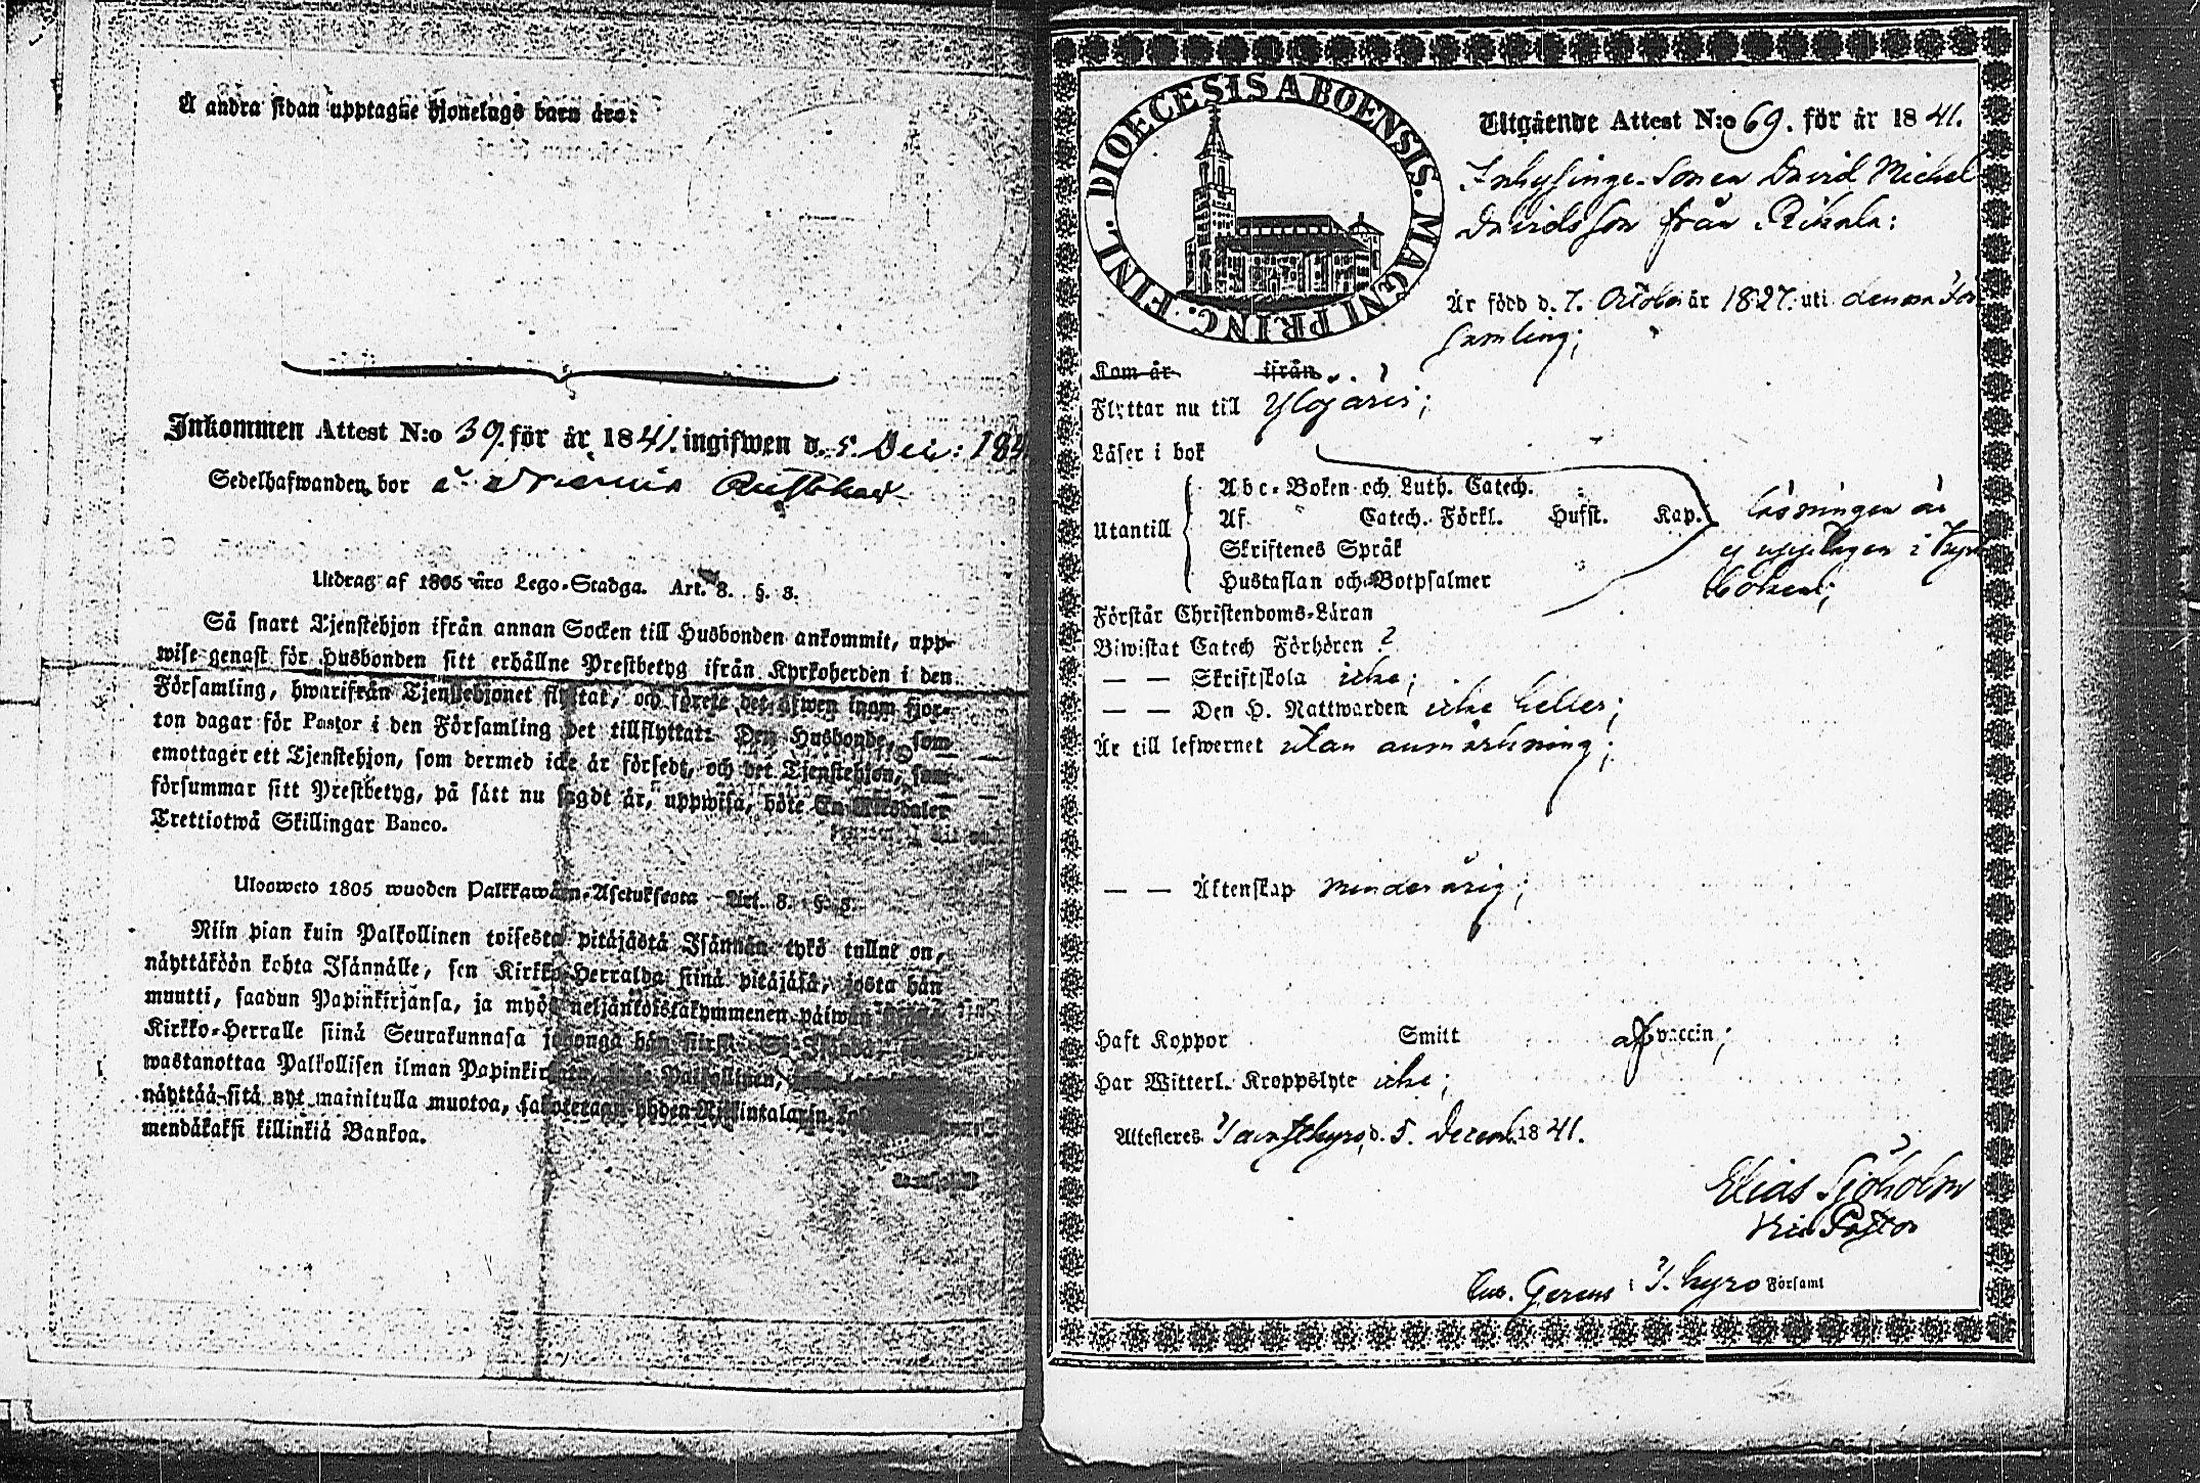 Å andra sidan upptagne hjonelags barn äro:
Inkommen Attest N:o 39. för år 1841. ingifwen d. 5. Dec: 184
Sedelhafwanden bor å
Utdrag af 1805 års Lego-Stadga. Art. 8. §. 3.
Så snart Tjenstehjon ifrån annan Socken till Husbonden ankommit, upp-
wise genast för Husbonden sitt erhållne Prestbetyg ifrån Kyrkoherden i den
Församling, hwarifrån Tjenstehjonet flyttat, och förete det äfwen inom fjor-
ton dagar för Pastor i den Församling det tillflyttat: Den Husbonde, som
emottager ett Tjenstehjon, som dermed icke är försedt, och det Tjenstehjon, som
försummar sitt Prestbetyg, på sätt nu sagdt är, uppwisa, böte En Riksdaler
Trettiotwå Skillingar Banco.
Ulosweto 1805 wuoden Palkkawäen-Asetuksesta Art. 8. §. 3.
Niin pian kuin Palkollinen toisesta pitäjästä Isännän tykö tullut on,
näyttäköön kohta Isännälle, sen Kirkko-Herralda siinä pitäjäsä, josta hän
muutti, saadun Papinkirjansa, ja myös neljänkoistakymmenen päiwän
Kirkko-Herralle siinä Seurakunnasa johonga hän siirsi
wastanottaa Palkollisen ilman Papinkirjata, Palkollinen,
näyttää sitä nyt mainitulla muotoa, sakotetaan yhden Riksintalarin
mendäkaksi killinkiä Bankoa.
DIOECESIS ABOENSIS. MAGNI PRINC. FINL.
Utgående Attest N:o 69. för år 1841.
Inhysinge-Sonen David Michel
Davidsson från Rikala:
Är född d. 7. Octobr år 1827. uti denna För
samling;
Kom år ifrån
Flyttar nu till Ylöjärvi;
Läser i bok
Utantill
Abc-Boken och Luth. Catech.
Af Catech. Förkl. Husst. Kap.
Skriftenes Språk
Hustaflan och Botpsalmer
läsningen är
ej upptagen i Kyrko
boken;
Förstår Christendoms-Läran
Biwistat Catech Förhören ?
— — Skriftskola icke;
— — Den H. Nattwarden icke heller;
Är till lefwernet utan anmärkning;
— — Äktenskap minderårig;
Haft Koppor Smitt af vaccin;
Har Witterl. Kroppslyte icke;
Attesteres Tavastkyro, d. 5. Decemb. 1841.
Elias Sjöholm
Vice Pastor
Cur. Gerens i T. kyro Församl